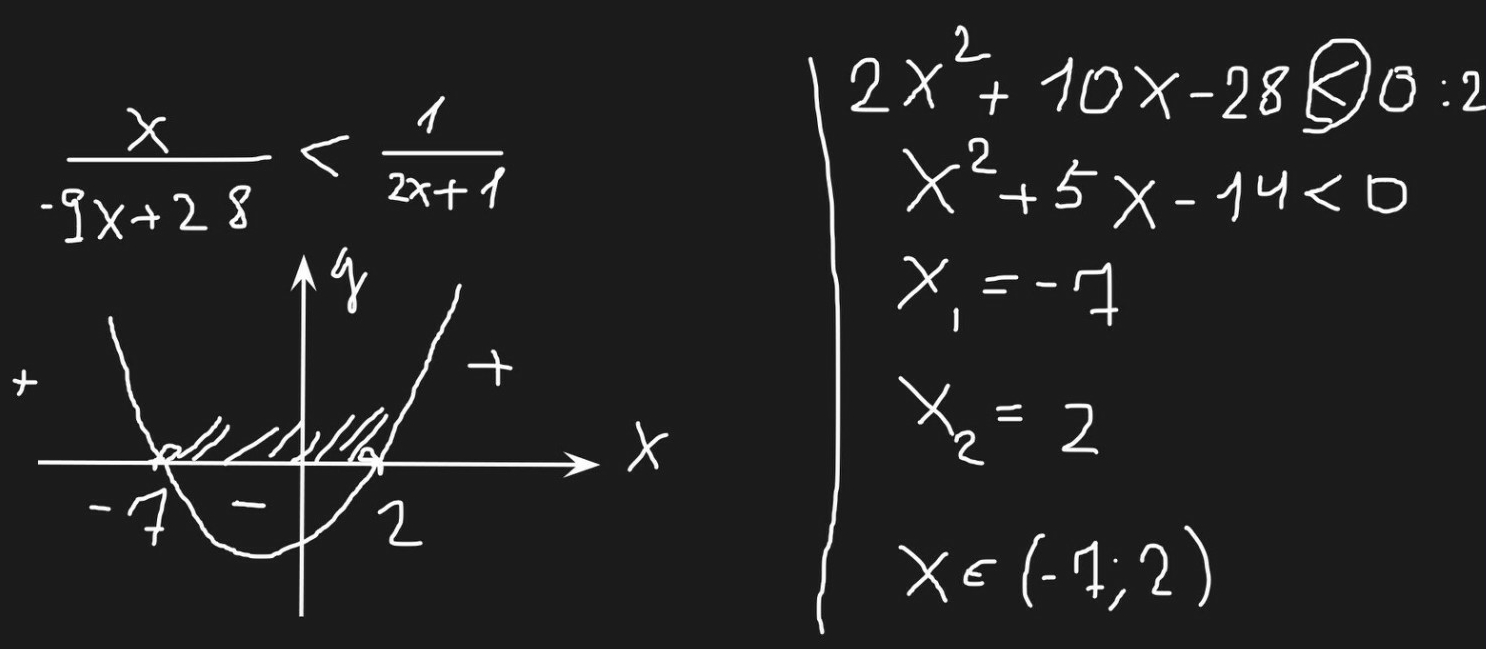 x/(-9x+28) < 1/(2x+1)
y
+ +
x
-7 - 2
2x² + 10x - 28 < 0 :2
x² + 5x - 14 < 0
x₁ = -7
x₂ = 2
x ∈ (-7; 2)